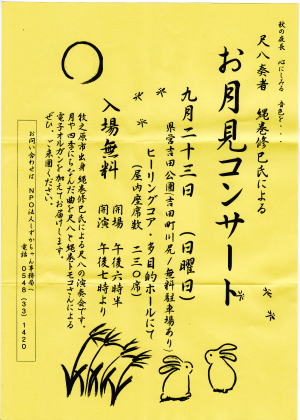 秋の夜長 心にしみる 音色を・・・
尺八奏者 縄巻修巳氏による
お月見コンサート
九月二十三日 (日曜日)
県営吉田公園(吉田町川尻/無料駐車場あり)
ヒーリングコア・多目的ホールにて
(屋内座席数 二三〇席)
入場無料
開場 午後六時半
開演 午後七時より
牧之原市出身 縄巻修巳氏による尺八の演奏会です。
月や四季にちなんだ曲を尺八と縄巻トモコさんによる
電子オルガンを加えてお届けします。
ぜひ、ご来園ください。
お問い合わせは NPO法人しずかちゃん事務局へ
電話 0548(33)1420